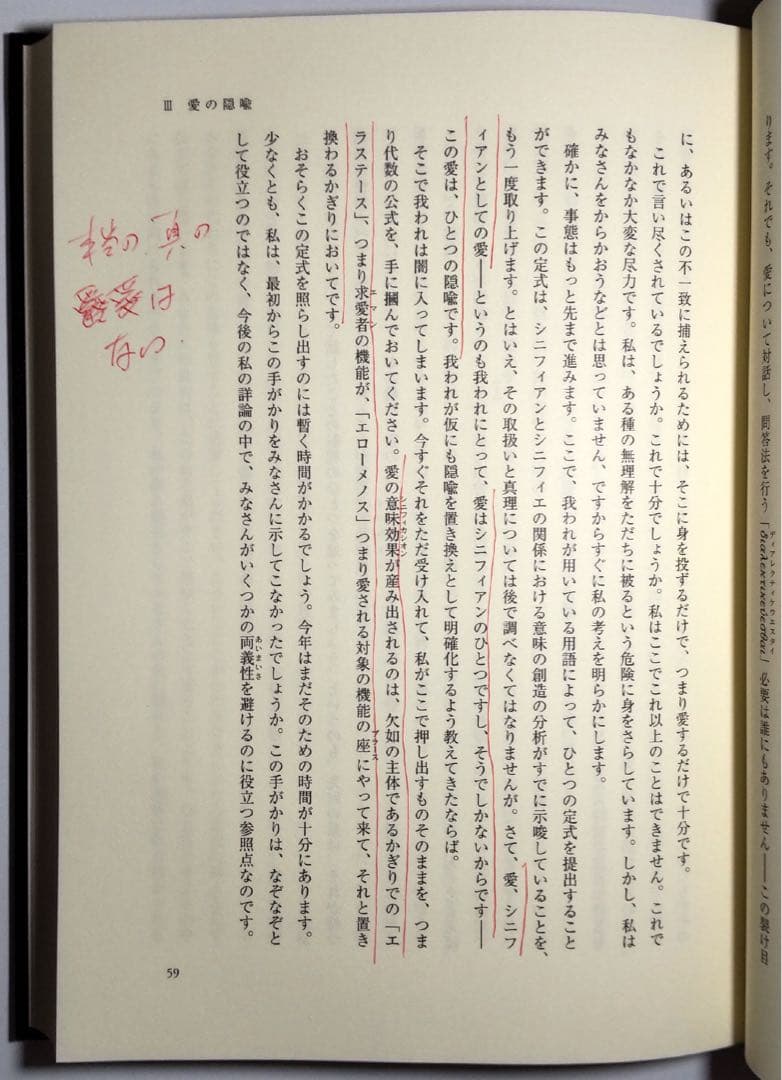 ります。それでも、愛について対話し、問答法を行う「διαλεκτικεύεσθαι ディアレクティケウエスタイ」必要は誰にもありません――この裂け目
に、あるいはこの不一致に捕えられるためには、そこに身を投ずるだけで、つまり愛するだけで十分です。
これで言い尽くされているでしょうか。これで十分でしょうか。私はここでこれ以上のことはできません。これで
もなかなか大変な尽力です。私は、ある種の無理解をただちに被るという危険に身をさらしています。しかし、私は
みなさんをからかおうなどとは思っていません、ですからすぐに私の考えを明らかにします。
確かに、事態はもっと先まで進みます。ここで、我われが用いている用語によって、ひとつの定式を提出すること
ができます。この定式は、シニフィアンとシニフィエの関係における意味の創造の分析がすでに示唆していることを、
もう一度取り上げます。とはいえ、その取扱いと真理については後で調べなくてはなりませんが。さて、愛、シニフ
ィアンとしての愛――というのも我われにとって、愛はシニフィアンのひとつですし、そうでしかないからです――
この愛は、ひとつの隠喩です。我われが仮にも隠喩を置き換えとして明確化するよう教えてきたならば。
そこで我われは闇に入ってしまいます。今すぐそれをただ受け入れて、私がここで押し出すものそのままを、つま
り代数の公式を、手に摑んでおいてください。愛の意味効果シニフィカシオンが産み出されるのは、欠如の主体であるかぎりでの「エ
ラステース」、つまり求愛者エマンの機能が、「エローメノス」つまり愛される対象の機能の座プラースにやって来て、それと置き
換わるかぎりにおいてです。
おそらくこの定式を照らし出すのには暫く時間がかかるでしょう。今年はまだそのための時間が十分にあります。
少なくとも、私は、最初からこの手がかりをみなさんに示してこなかったでしょうか。この手がかりは、なぞなぞと
して役立つのではなく、今後の私の詳論の中で、みなさんがいくつかの両義性あいまいさを避けるのに役立つ参照点なのです。
Ⅲ 愛の隠喩
59
真の
愛は
ない